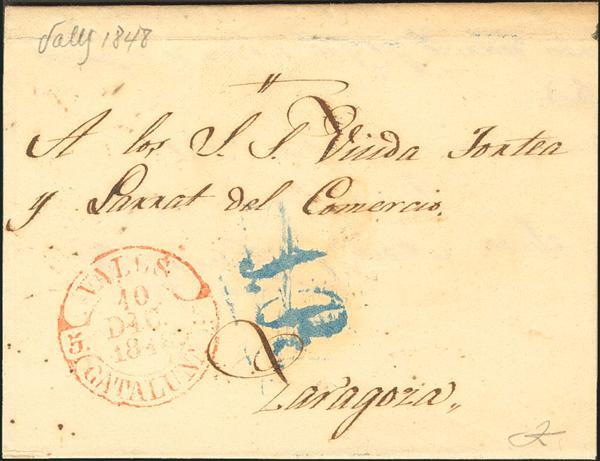 Valls 1848
A los S. S. Viuda Fortea
y Larrat del Comercio.
VALLS
10
DIC.
CATALUÑ
Zaragoza